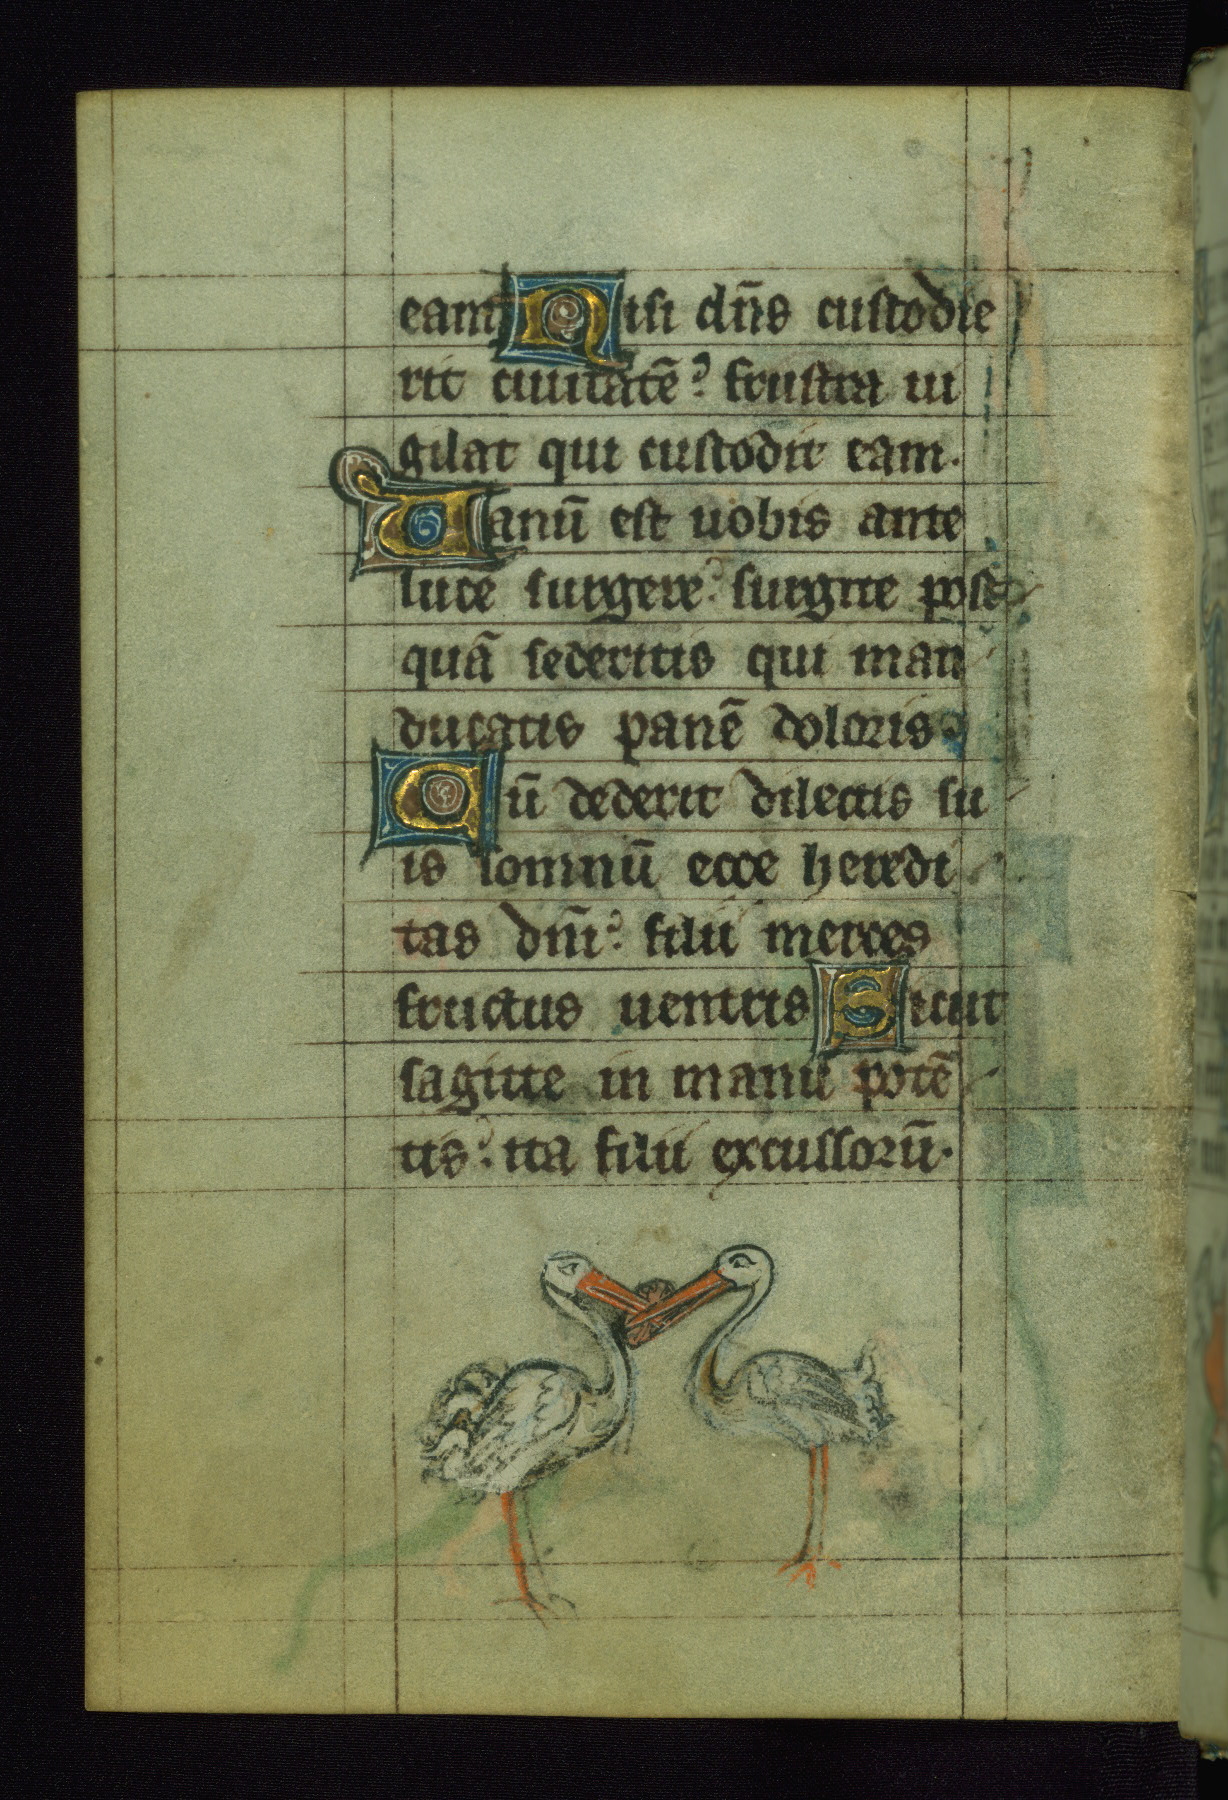 eam Nisi dn̄s custodie
rit ciuitatē? frustra ui
gilat qui custodit eam.
Uanū est uobis ante
lucē surgere? surgite post
quā sederitis qui man
ducatis panē doloris.
Cū dederit dilectis su
is somnū ecce heredi
tas dn̄i? filii merces
fructus uentris Sicut
sagitte in manu potē
tis? ita filii excussorū.